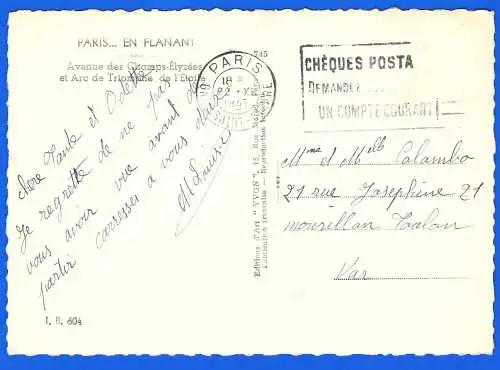 PARIS... EN FLANANT
745
Avenue des Champs-Élysées
et Arc de Triomphe de l'Étoile
chère Tante et Odette
Je regrette de ne pas
vous avoir vue avant de
partir caresses a vous deux
PARIS
18 H
22 - XII
CHÈQUES POSTA
DEMANDEZ
UN COMPTE COURANT
Mme et Melle Colombo
21 rue Josephine 21
mourillon Toulon
Var
Editions d'Art "YVON", 15, Rue Martel, Paris
Fabrication française - Reproduction interdite
I. B. 604